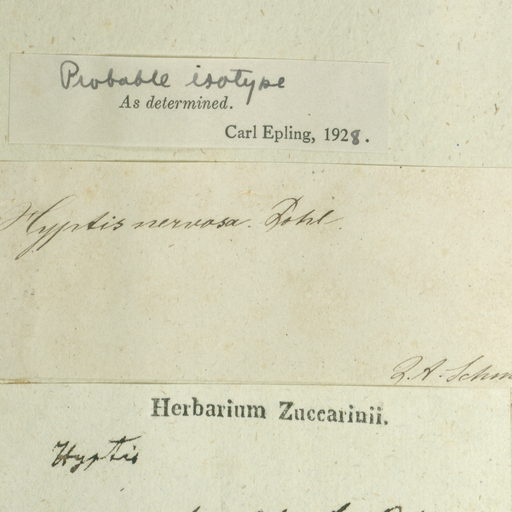 Probable isotype
As determined.
Carl Epling, 1928.
Hyptis nervosa. Pohl.
Herbarium Zuccarinii.
Hyptis